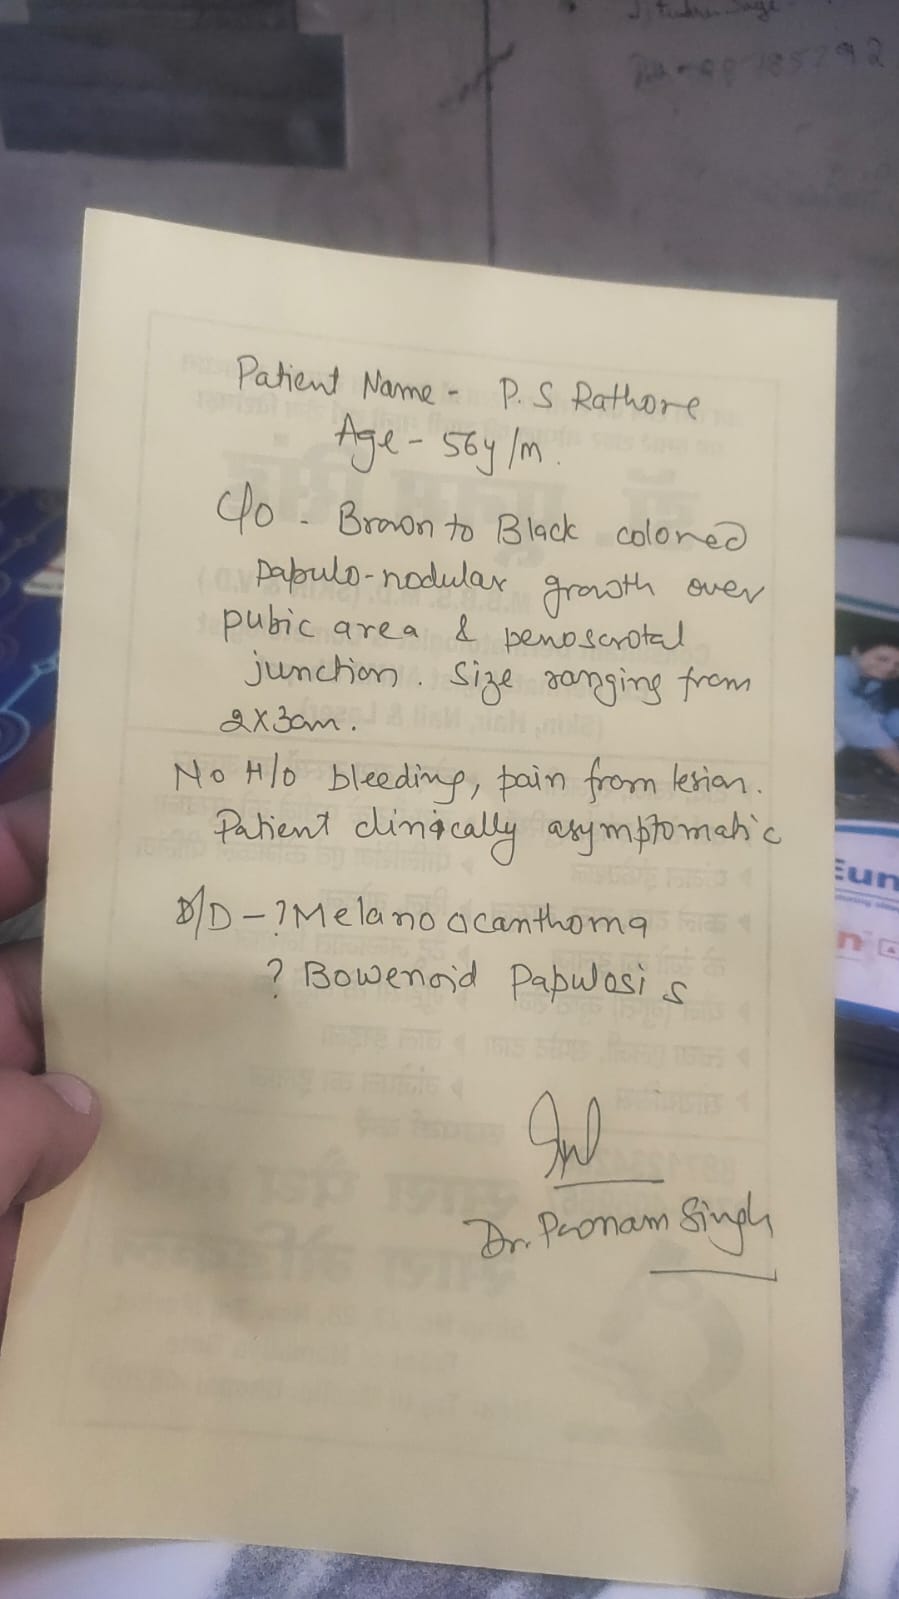 Patient Name - P. S Rathore
Age - 56y/m.
C/o - Brown to Black colored
papulo-nodular growth over
pubic area & penoscrotal
junction. Size ranging from
2x3cm.
No H/o bleeding, pain from lesion.
Patient clinically asymptomatic
D/D - ? Melano acanthoma
? Bowenoid Papulosis
Dr. Poonam Singh
Eun